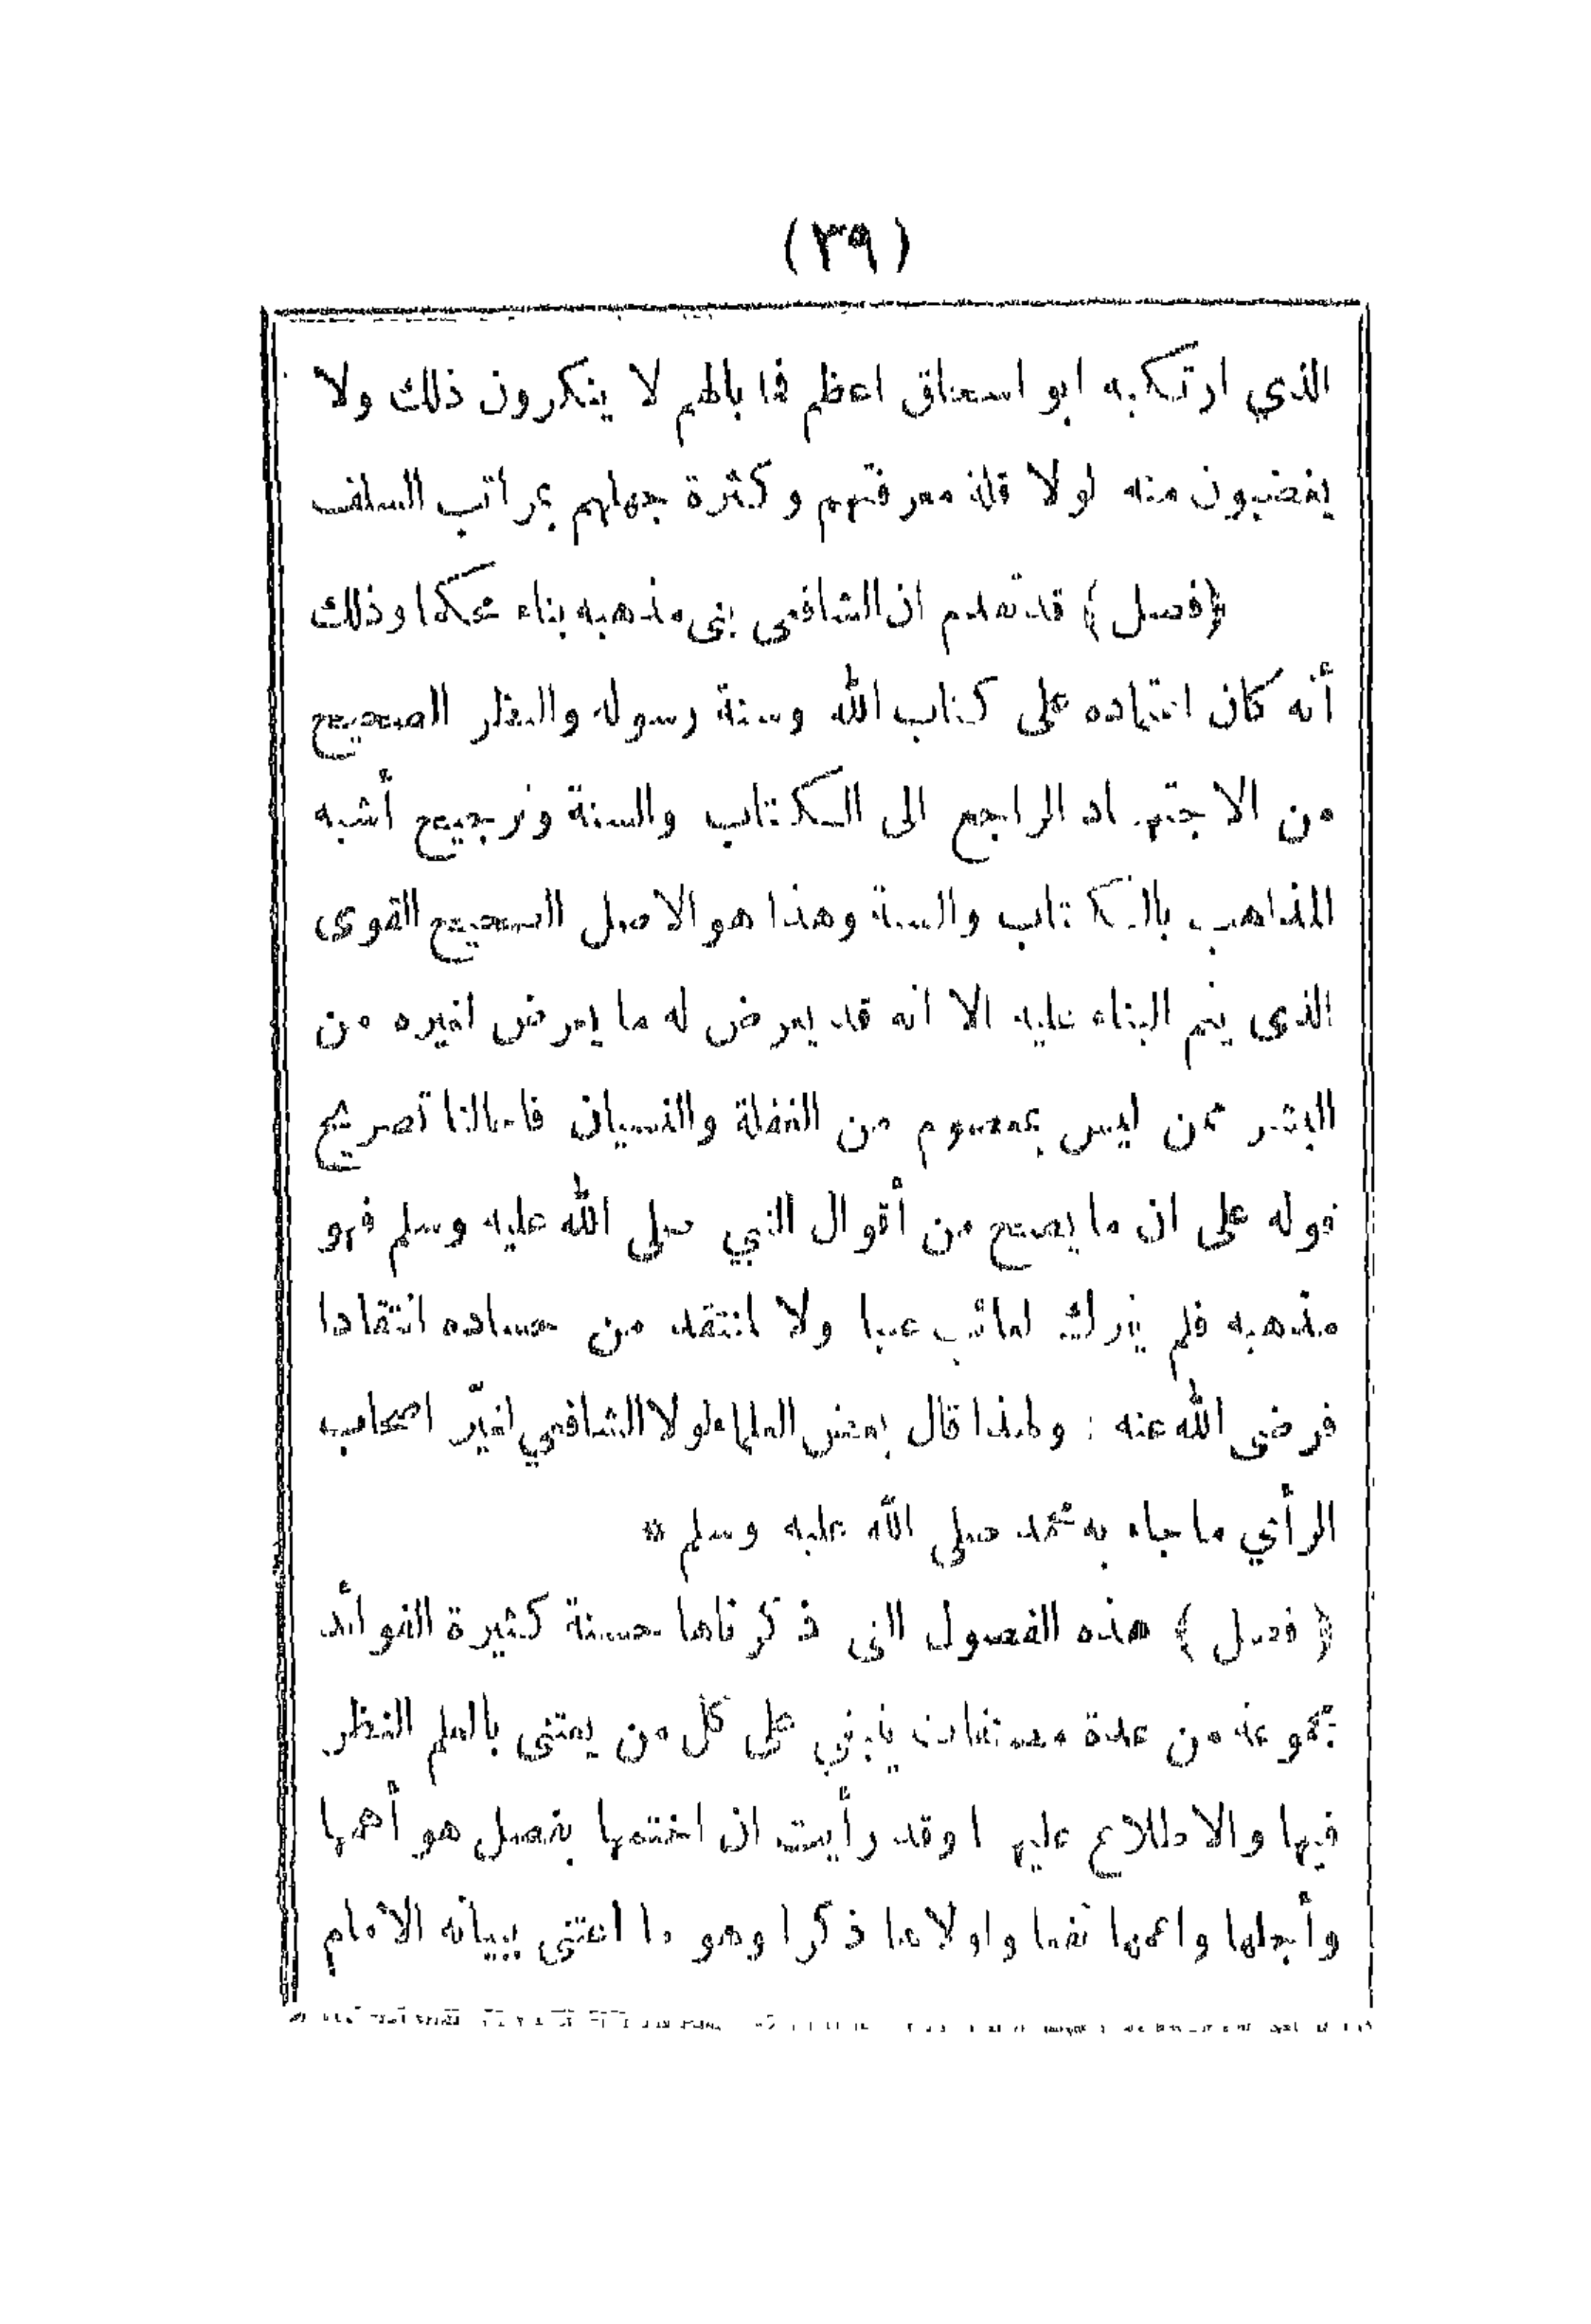 (٣٩)
الذي ارتكبه ابو اسحاق اعظم فما بالهم لا ينكرون ذلك ولا
يغضبون منه لولا قلة معرفتهم وكثرة جهلهم بمراتب السلف
﴿فصل﴾ قد تقدم ان الشافعى بنى مذهبه بناء محكما وذلك
أنه كان اعتماده على كتاب الله وسنة رسوله والنظر الصحيح
من الاجتهاد الراجع الى الكتاب والسنة وترجيح أشبه
المذاهب بالكتاب والسنة وهذا هو الاصل الصحيح القوى
الذى يتم البناء عليه الا انه قد يعرض له ما يعرض لغيره من
البشر ممن ليس بمعصوم من الغفلة والنسيان فاحالنا تصريح
قوله على ان ما يصح من أقوال النبي صلى الله عليه وسلم فهو
مذهبه فلم يترك لعائب عيبا ولا لمنتقد من حساده انتقادا
فرضى الله عنه : ولهذا قال بعض العلماء لولا الشافعي لغيّر اصحاب
الرأي ما جاء به محمد صلى الله عليه وسلم *
﴿ فصل ﴾ هذه الفصول التى ذكرناها حسنة كثيرة الفوائد
مجموعة من عدة مصنفات ينبغي على كل من يعتنى بالعلم النظر
فيها والاطلاع عليها وقد رأيت ان اختمها بفصل هو أهمها
وأجلها واعمها نفعا واولاها ذكرا وهو ما اعتنى ببيانه الامام